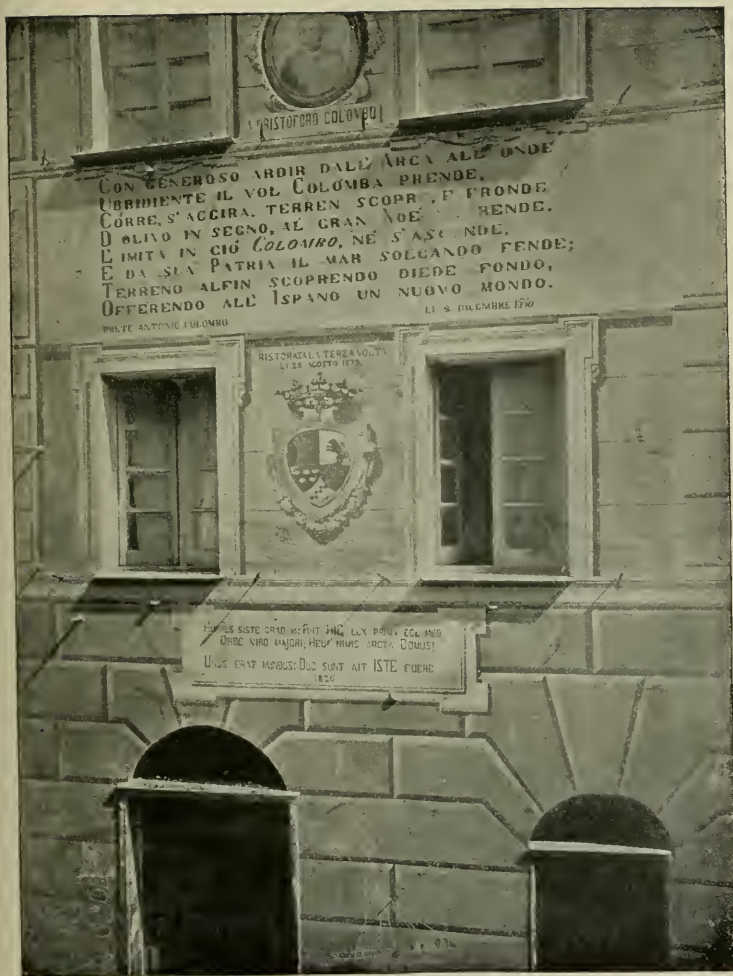 CRISTOFORO COLOMBO
CON GENEROSO ARDIR DALL' ARCA ALL' ONDE
UBBIDIENTE IL VOL COLOMBA PRENDE,
CORRE, S'AGGIRA, TERREN SCOPR E FRONDE
D OLIVO IN SEGNO, AL GRAN NOÈ RENDE.
L' IMITA IN CIÓ COLOMBO, NÉ S'ASCONDE,
E DA SUA PATRIA IL MAR SOLCANDO FENDE;
TERRENO ALFIN SCOPRENDO DIEDE FONDO,
OFFERENDO ALL' ISPANO UN NUOVO MONDO.
PRETE ANTONIO COLOMBO
LI 2 DICEMBRE
RISTORATA LA TERZA VOLTA
LI 28 AGOSTO 1879.
SISTE GRAD HIC LUX
ORBE VIRO MAJORI; HEU! NIMIS ARCTA DOMUS!
UNUS ERAT MUNDUS: DUO SUNT AIT ISTE FUERE
1826